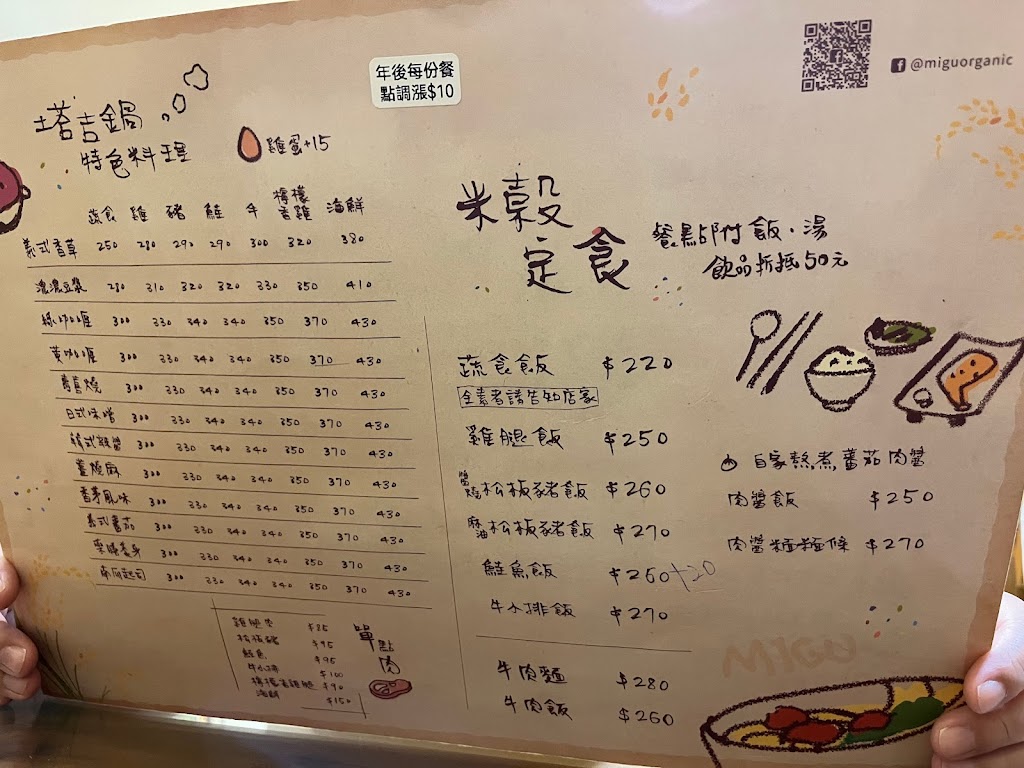 年後每份餐
點調漲$10
@miguorganic
塔吉鍋
特色料理
雞蛋+15
蔬食 雞 豬 鮭 牛 檸檬香雞 海鮮
義式香草 250 280 290 290 300 320 380
濃濃豆漿 280 310 320 320 330 350 410
綠咖喱 300 330 340 340 350 370 430
黃咖喱 300 330 340 340 350 370 430
壽喜燒 300 330 340 340 350 370 430
日式味噌 300 330 340 340 350 370 430
韓式甜醬 300 330 340 340 350 370 430
薑燒麻 300 330 340 340 350 370 430
香茅風味 300 330 340 340 350 370 430
義式蕃茄 300 330 340 340 350 370 430
300 330 340 340 350 370 430
南瓜起司 300 330 340 340 350 370 430
單點肉
雞腿肉 $85
松板豬 $95
鮭魚 $95
牛小排 $100
檸檬香雞腿 $90
海鮮 $150
米穀
定食
餐點皆附飯、湯
飲品折抵50元
蔬食飯 $220
全素者請告知店家
雞腿飯 $250
醬燒松板豬飯 $260
麻油松板豬飯 $270
鮭魚飯 $260+20
牛小排飯 $270
牛肉麵 $280
牛肉飯 $260
自家熬煮蕃茄肉醬
肉醬飯 $250
肉醬麵麵條 $270
MIGU